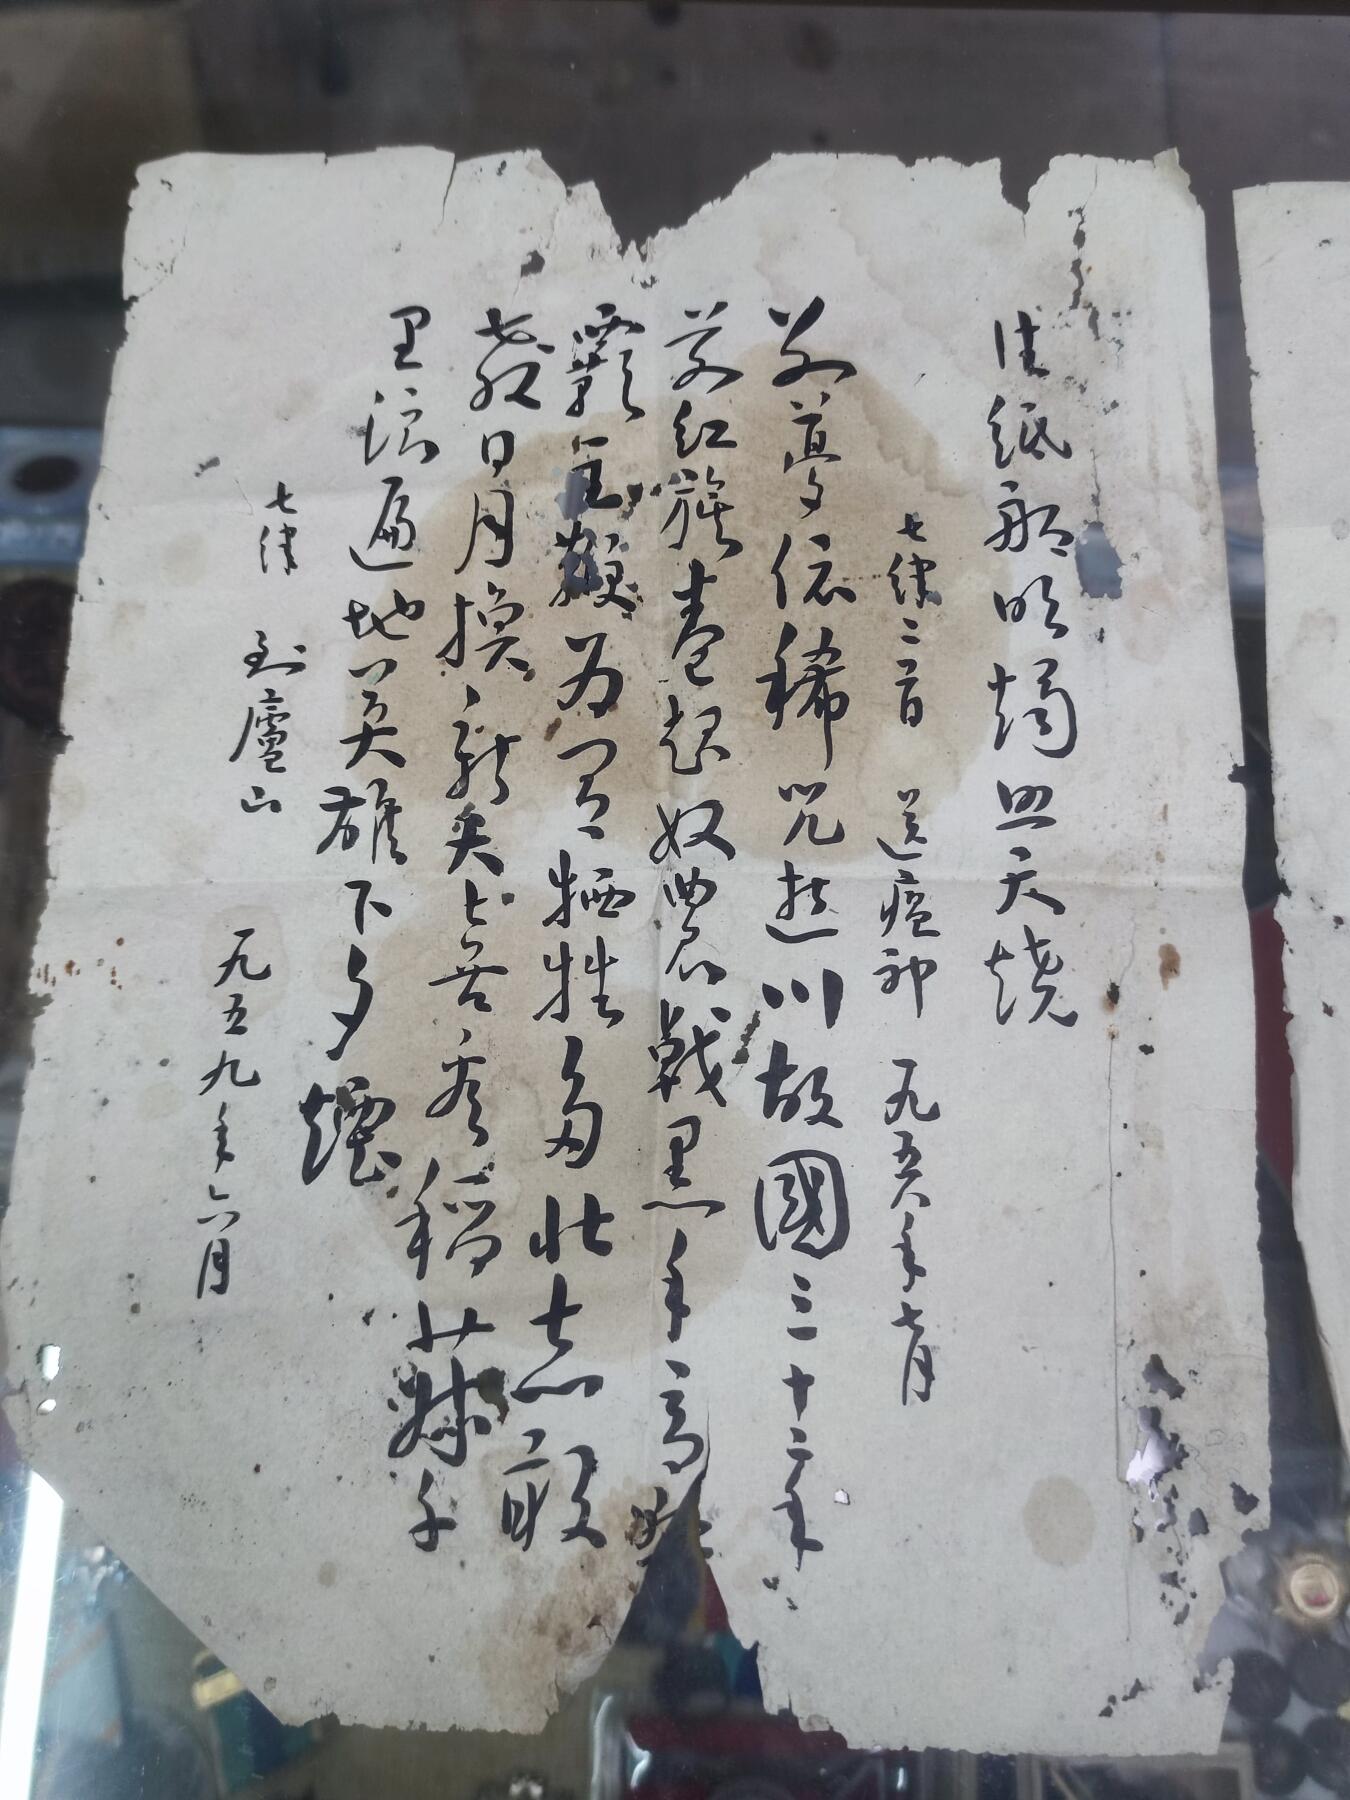 往纸船明烛照天烧
七律二首 送瘟神 一九五八年七月
别梦依稀咒逝川故國三十二年
前红旗卷起奴農戟黑手高懸
霸主鞭为有犧牲多壮志敢
教日月换新天喜看稻菽千
里浪遍地英雄下夕煙
七律 到廬山
一九五九年六月